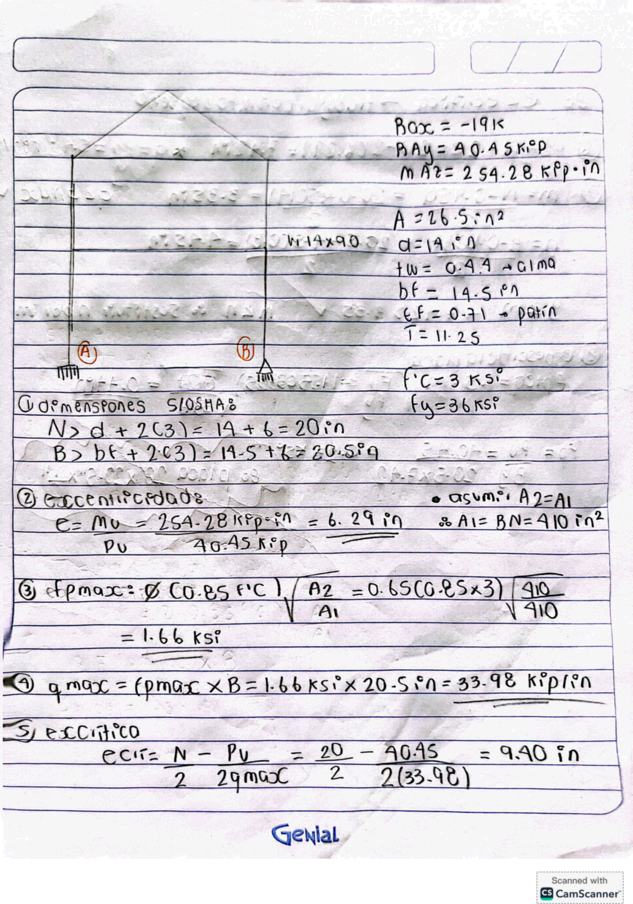 Rax = -19K
RAy = 40.45 Kip
MAz = 254.28 Kip·in
A = 26.5 in²
d = 14 in
tw = 0.44 → alma
bf = 14.5 in
tf = 0.71 → patin
T = 11.25
f'c = 3 Ksi
fy = 36 Ksi
W 14x90
A
B
① dimensiones S/OSHA:
N > d + 2(3) = 14 + 6 = 20 in
B > bf + 2(3) = 14.5 + 6 = 20.5 in
② excentricidad:
e = Mu/Pu = 254.28 Kip·in/40.45 Kip = 6.29 in
• asumir A2 = A1
∴ A1 = BN = 410 in²
③ fpmax = ∅ (0.85 f'c) √(A2/A1) = 0.65(0.85x3) √(410/410)
= 1.66 Ksi
④ qmax = fpmax x B = 1.66 Ksi x 20.5 in = 33.98 Kip/in
5) ecritico
ecrit = N/2 - Pu/2qmax = 20/2 - 40.45/2(33.98) = 9.40 in
Genial
Scanned with
CS CamScanner